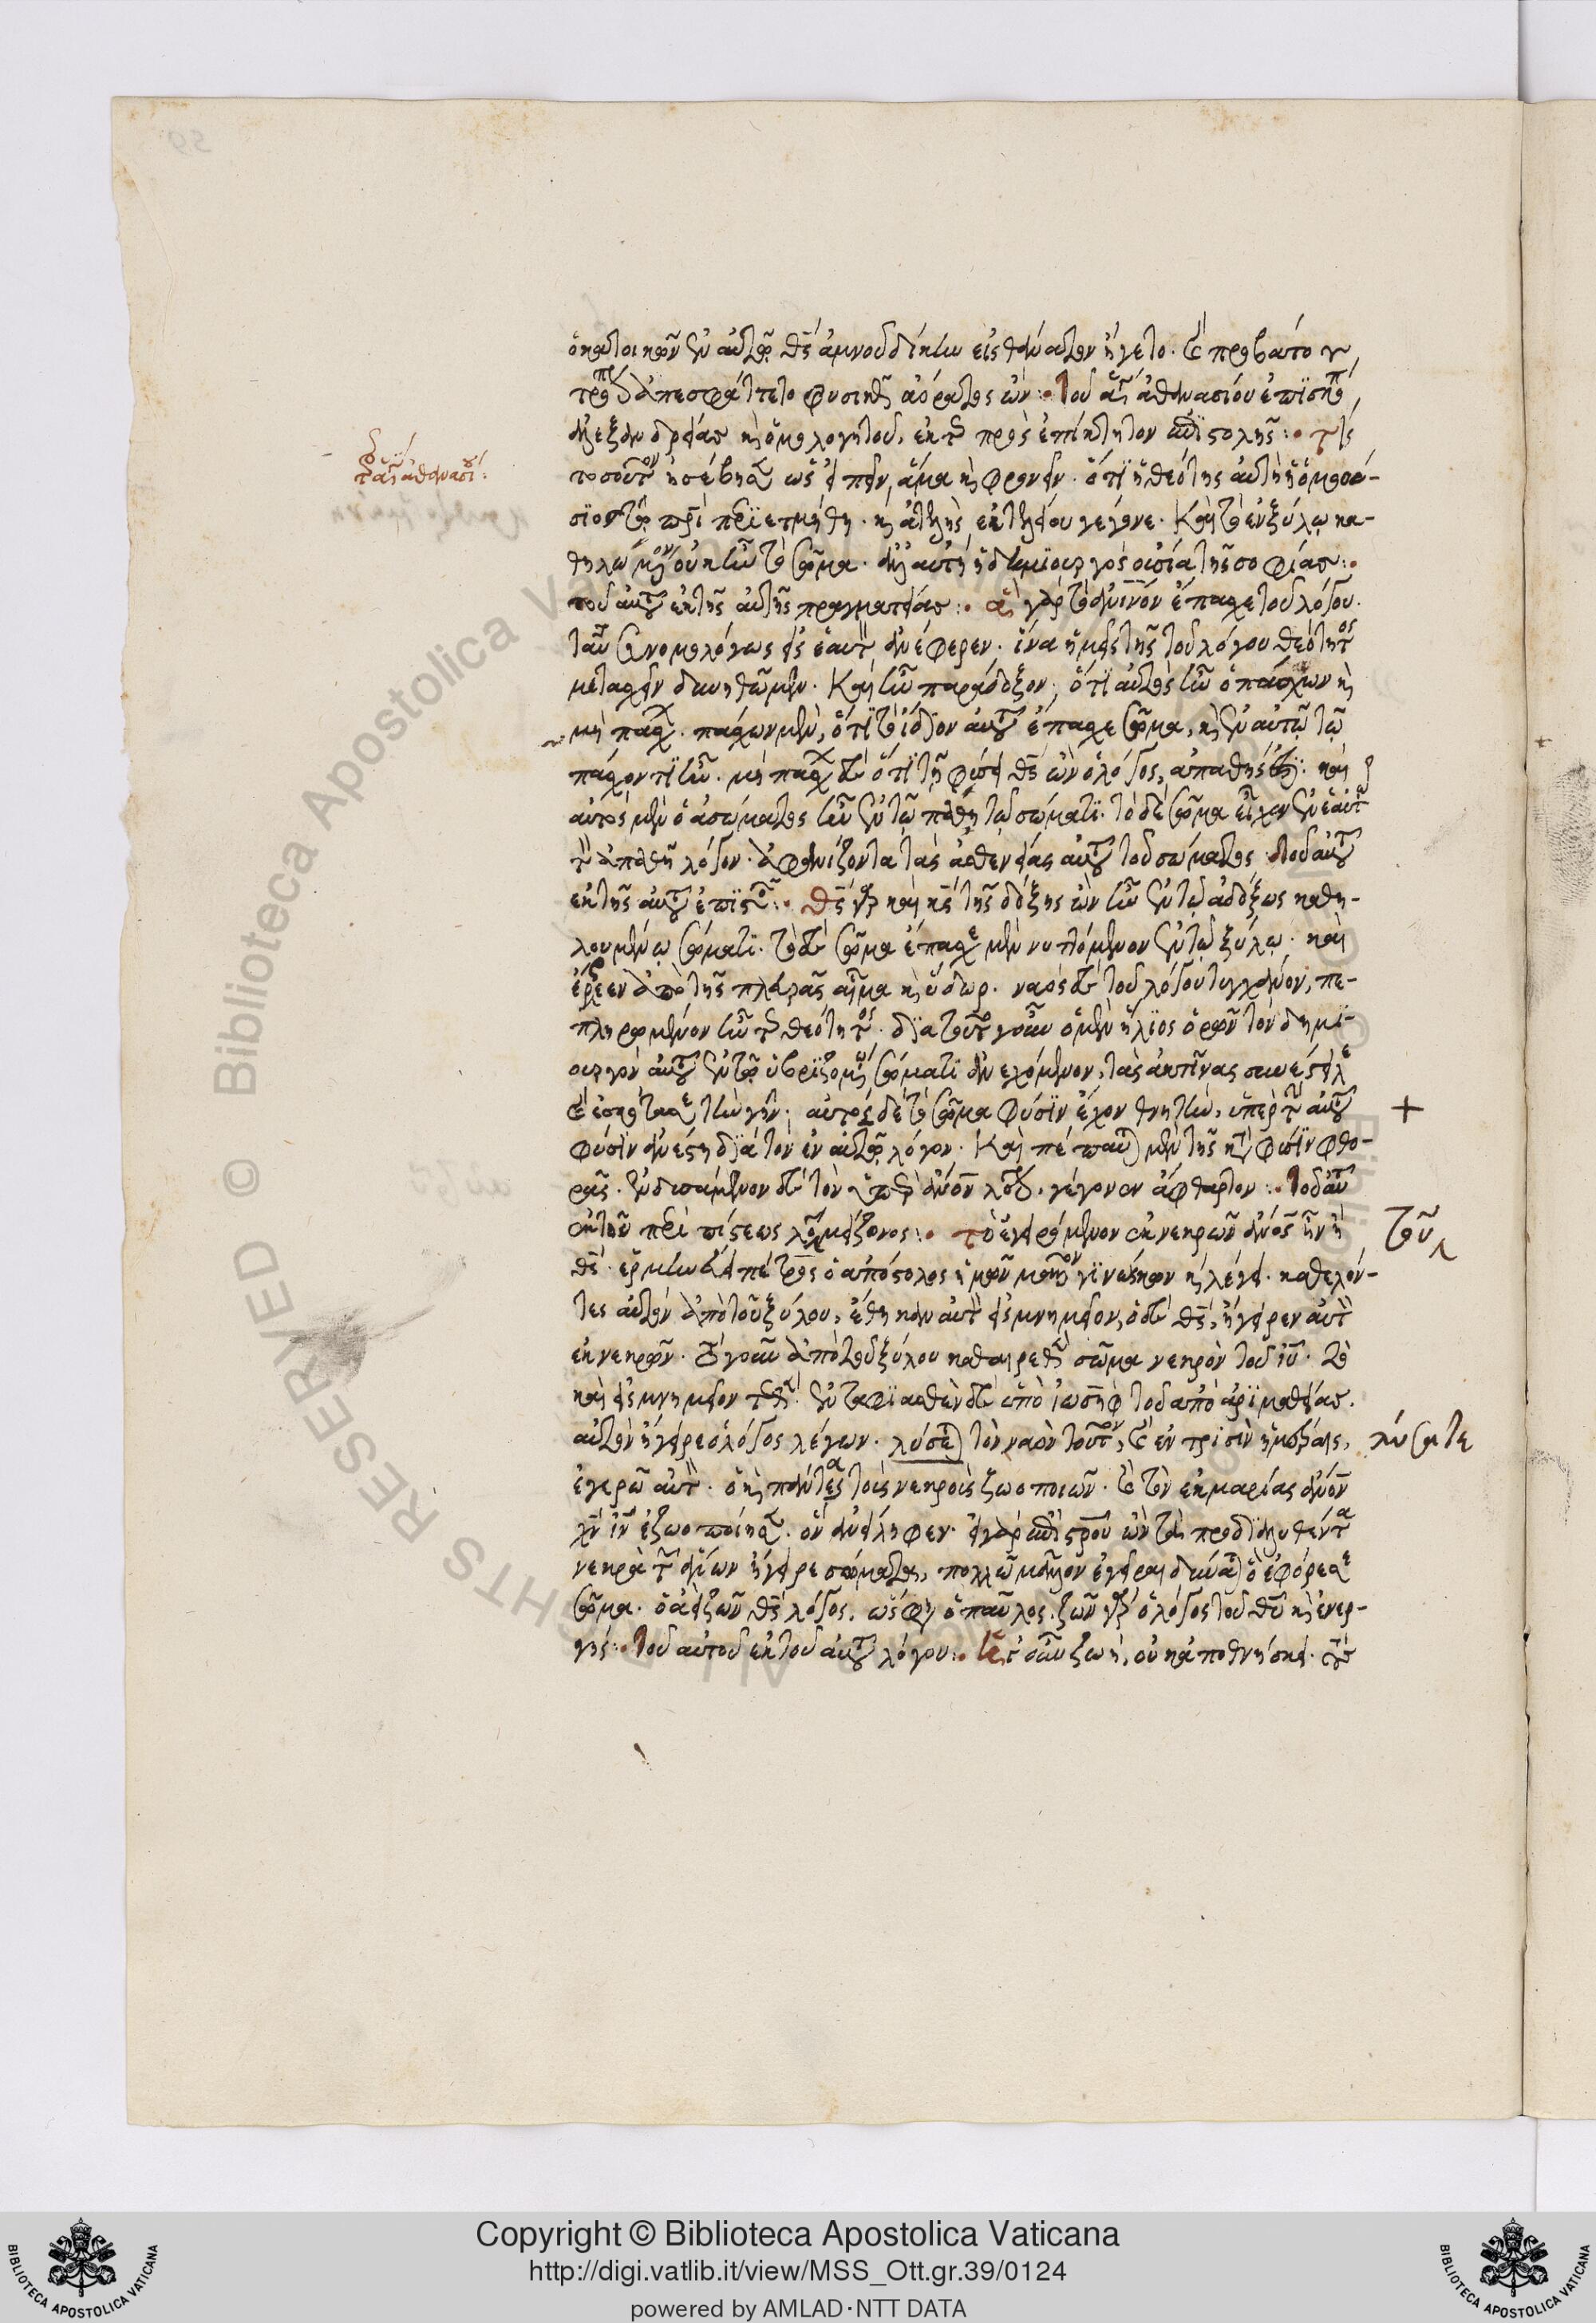 ὁ κατοικῶν ἐν αὐτῷ θς. ἀμνοῦ δίκην εἰς θάνατον ἤγετο. καὶ προβάτου
τρόπον ἀπεσφάττετο φυσικῶς ἀόρατος ὤν: τοῦ ἁγ ἀθανασίου ἐπισκόπ
ἀλεξανδρείας καὶ ὁμολογητοῦ, ἐκ τῆς πρὸς ἐπίκτητον ἐπιστολῆς: τίς
τοσοῦτον ἠσέβησεν ὡς εἰπεῖν, ἅμα καὶ φρονεῖν. ὅτι ἡ θεότης αὐτὴ ἡ ὁμοού-
σιος τῷ πρὶ περιετμήθη. καὶ ἀτελὴς ἐκ τελείου γέγονε. καὶ τὸ ἐν ξύλῳ κα-
θηλωμένον οὐκ ἦν τὸ σῶμα. ἀλλ' αὐτὴ ἡ δημιουργὸς οὐσία τῆς σοφίας:
τοῦ αὐτοῦ ἐκ τῆς αὐτῆς πραγματείας: ἃ γὰρ τὸ ἀνινον ἔπασχε τοῦ λόγου.
ταῦτα συνὼν ὁ λόγος εἰς ἑαυτὸν ἀνέφερεν. ἵνα ἡμεῖς τῆς τοῦ λόγου θεότητος
μετασχεῖν δυνηθῶμεν. καὶ ἦν παράδοξον, ὅτι αὐτὸς ἦν ὁ πάσχων καὶ
μὴ πάσχων. πάσχων μὲν, ὅτι τὸ ἴδιον αὐτοῦ ἔπασχε σῶμα, καὶ ἐν αὐτῷ τῷ
πάσχοντι ἦν. μὴ πάσχων δὲ ὅτι τῇ φύσει θς ὢν ὁ λόγος, ἀπαθής ἐστι. καὶ
αὐτὸς μὲν ὁ ἀσώματος ἦν ἐν τῷ παθητῷ σώματι. τὸ δὲ σῶμα εἶχεν ἐν ἑαυτῷ
τὸν ἀπαθῆ λόγον. ἀφανίζοντα τὰς ἀσθενείας αὐτοῦ τοῦ σώματος τοῦ αὐτοῦ
ἐκ τῆς αὐτοῦ ἐπιστολ: θς γὰρ καὶ κς τῆς δόξης ὢν ἦν ἐν τῷ ἀδόξως καθη-
λουμένῳ σώματι. τὸ δὲ σῶμα ἔπασχε μὲν νυττόμενον ἐν τῷ ξύλῳ. καὶ
ἔρρεεν ἀπὸ τῆς πλευρᾶς αἷμα καὶ ὕδωρ. ναὸς δὲ τοῦ λόγου τυγχάνον, πε-
πληρωμένον ἦν τῆς θεότητος. διὰ τοῦτο γοῦν ὁ μὲν ἥλιος ὁρῶν τὸν δημι-
ουργὸν αὐτοῦ ἐν τῷ ὑβριζομένῳ σώματι ἀνεχόμενον, τὰς ἀκτῖνας συνέστειλε
καὶ ἐσκότασε τὴν γῆν. αὐτὸς δὲ τὸ σῶμα φύσιν ἔχον θνητὴν, ὑπὲρ τὴν αὐτοῦ
φύσιν ἀνέστη διὰ τὸν ἐν αὐτῷ λόγον. καὶ πέπαυται μὲν τῆς κατὰ φύσιν φθο-
ρᾶς. ἐνδυσάμενον δὲ τὸν ὑπὲρ ἄνον λόγον. γέγονεν ἄφθαρτον: τοῦ αὐτ
ἐκ τοῦ περὶ πίστεως λόγου μείζονος: τὸ ἐγειρόμενον ἐκ νεκρῶν ἀνος ἦν ἢ
θς. ἑρμηνεύει πέτρος ὁ ἀπόστολος ἡμῶν μᾶλλον γινώσκων καὶ λέγει. καθελόν-
τες αὐτὸν ἀπὸ τοῦ ξύλου, ἔθηκαν αὐτὸν εἰς μνημεῖον, ὁ δὲ θς, ἤγειρεν αὐτὸν
ἐκ νεκρῶν. τὸ γοῦν ἀπὸ τοῦ ξύλου καθαιρεθὲν σῶμα νεκρὸν τοῦ ιυ. τὸ
καὶ εἰς μνημεῖον τεθὲν. ἐνταφιασθὲν δὲ ὑπὸ ἰωσὴφ τοῦ ἀπὸ ἀριμαθείας.
αὐτὸν ἤγειρε ὁ λόγος λέγων. λύσεται τὸν ναὸν τοῦτον, καὶ ἐν τρισὶν ἡμέραις,
ἐγερῶ αὐτόν. ὁ καὶ πάντας τοὺς νεκροὺς ζωοποιῶν. καὶ τὸν ἐκ μαρίας ἄνον
χν ιν ἐζωοποίησεν. ὃν ἀνείληφεν. εἰ γὰρ ἐπὶ στρου ὢν τὰ προδιαλυθέντα
νεκρὰ τῶν ἁγίων ἤγειρε σώματα, πολλῷ μᾶλλον ἐγεῖραι δύναται ὃ ἐφόρεσε
σῶμα. ὁ ἀεὶ ζῶν θς λόγος. ὥς φησιν ὁ παῦλος. ζῶν γὰρ ὁ λόγος τοῦ θυ καὶ ἐνερ-
γής: τοῦ αὐτοῦ ἐκ τοῦ αὐτοῦ λόγου: ἡ οὖν ζωὴ, οὐκ ἀποθνήσκει.
τοῦ ἁγ ἀθανασί:
+
τοῦ
λύσατε
Copyright © Biblioteca Apostolica Vaticana
http://digi.vatlib.it/view/MSS_Ott.gr.39/0124
powered by AMLAD·NTT DATA
BIBLIOTECA APOSTOLICA VATICANA
BIBLIOTECA APOSTOLICA VATICANA